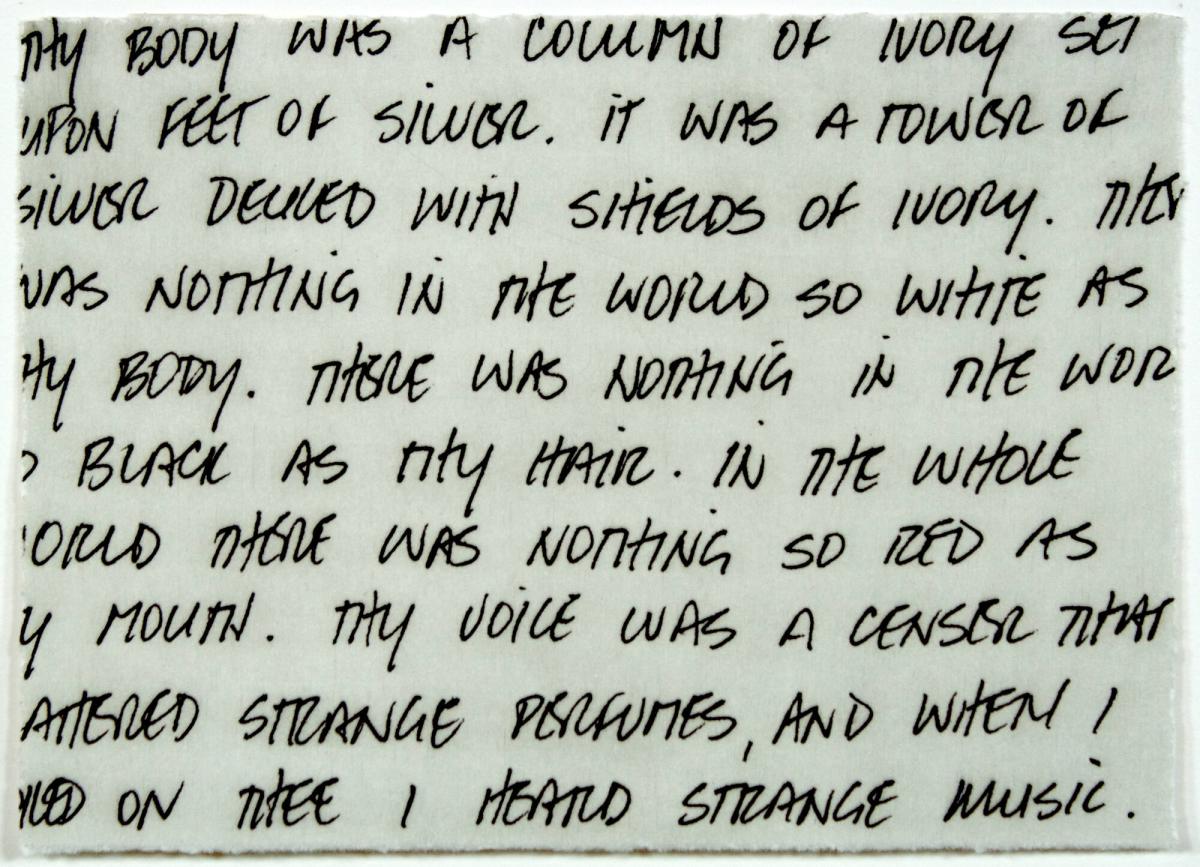 THY BODY WAS A COLUMN OF IVORY SET
UPON FEET OF SILVER. IT WAS A TOWER OF
SILVER DECKED WITH SHIELDS OF IVORY. THER
WAS NOTHING IN THE WORLD SO WHITE AS
HY BODY. THERE WAS NOTHING IN THE WOR
O BLACK AS THY HAIR. IN THE WHOLE
ORLD THERE WAS NOTHING SO RED AS
Y MOUTH. THY VOICE WAS A CENSER THAT
ATTERED STRANGE PERFUMES, AND WHEN I
OKED ON THEE I HEARD STRANGE MUSIC.